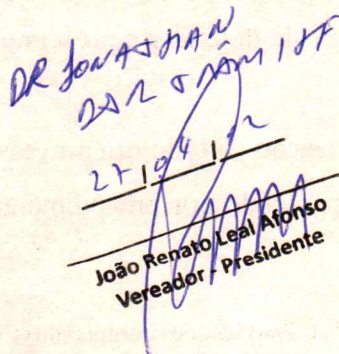 DR JONATHAN
DAR TRÂMITE
27/04/12
João Renato Leal Afonso
Vereador - Presidente